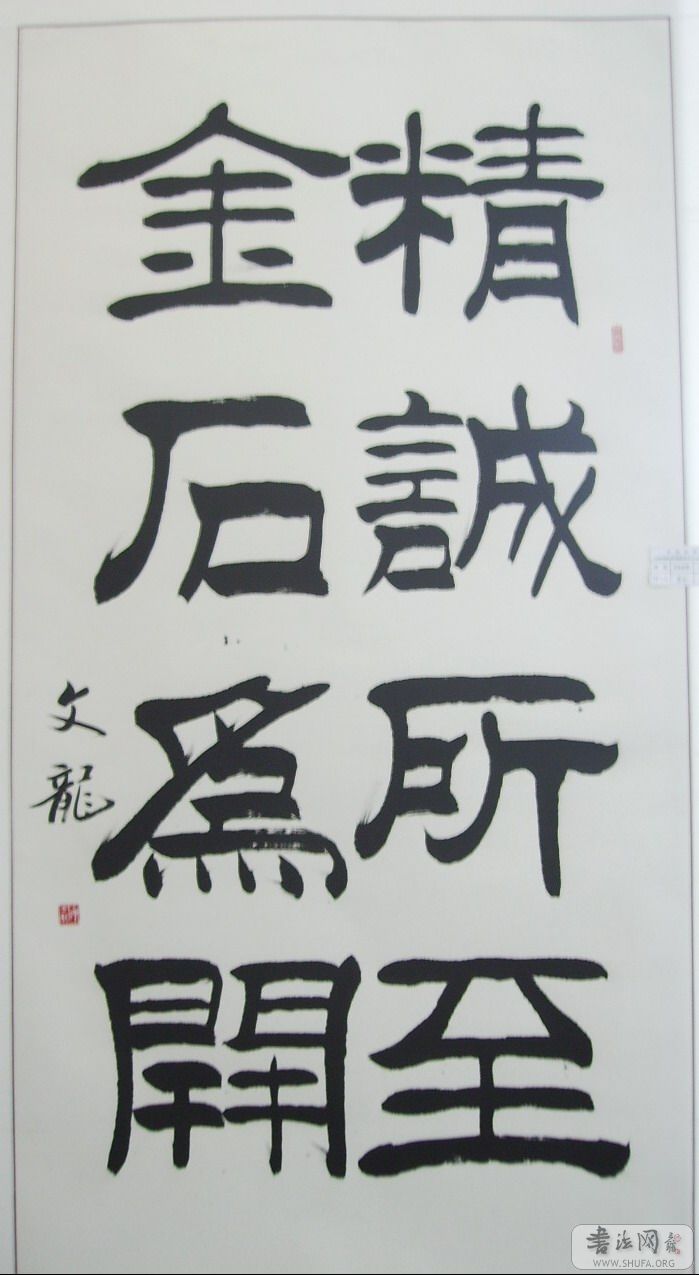 精誠所至
金石為開
文龍
書法网
WWW.SHUFA.ORG